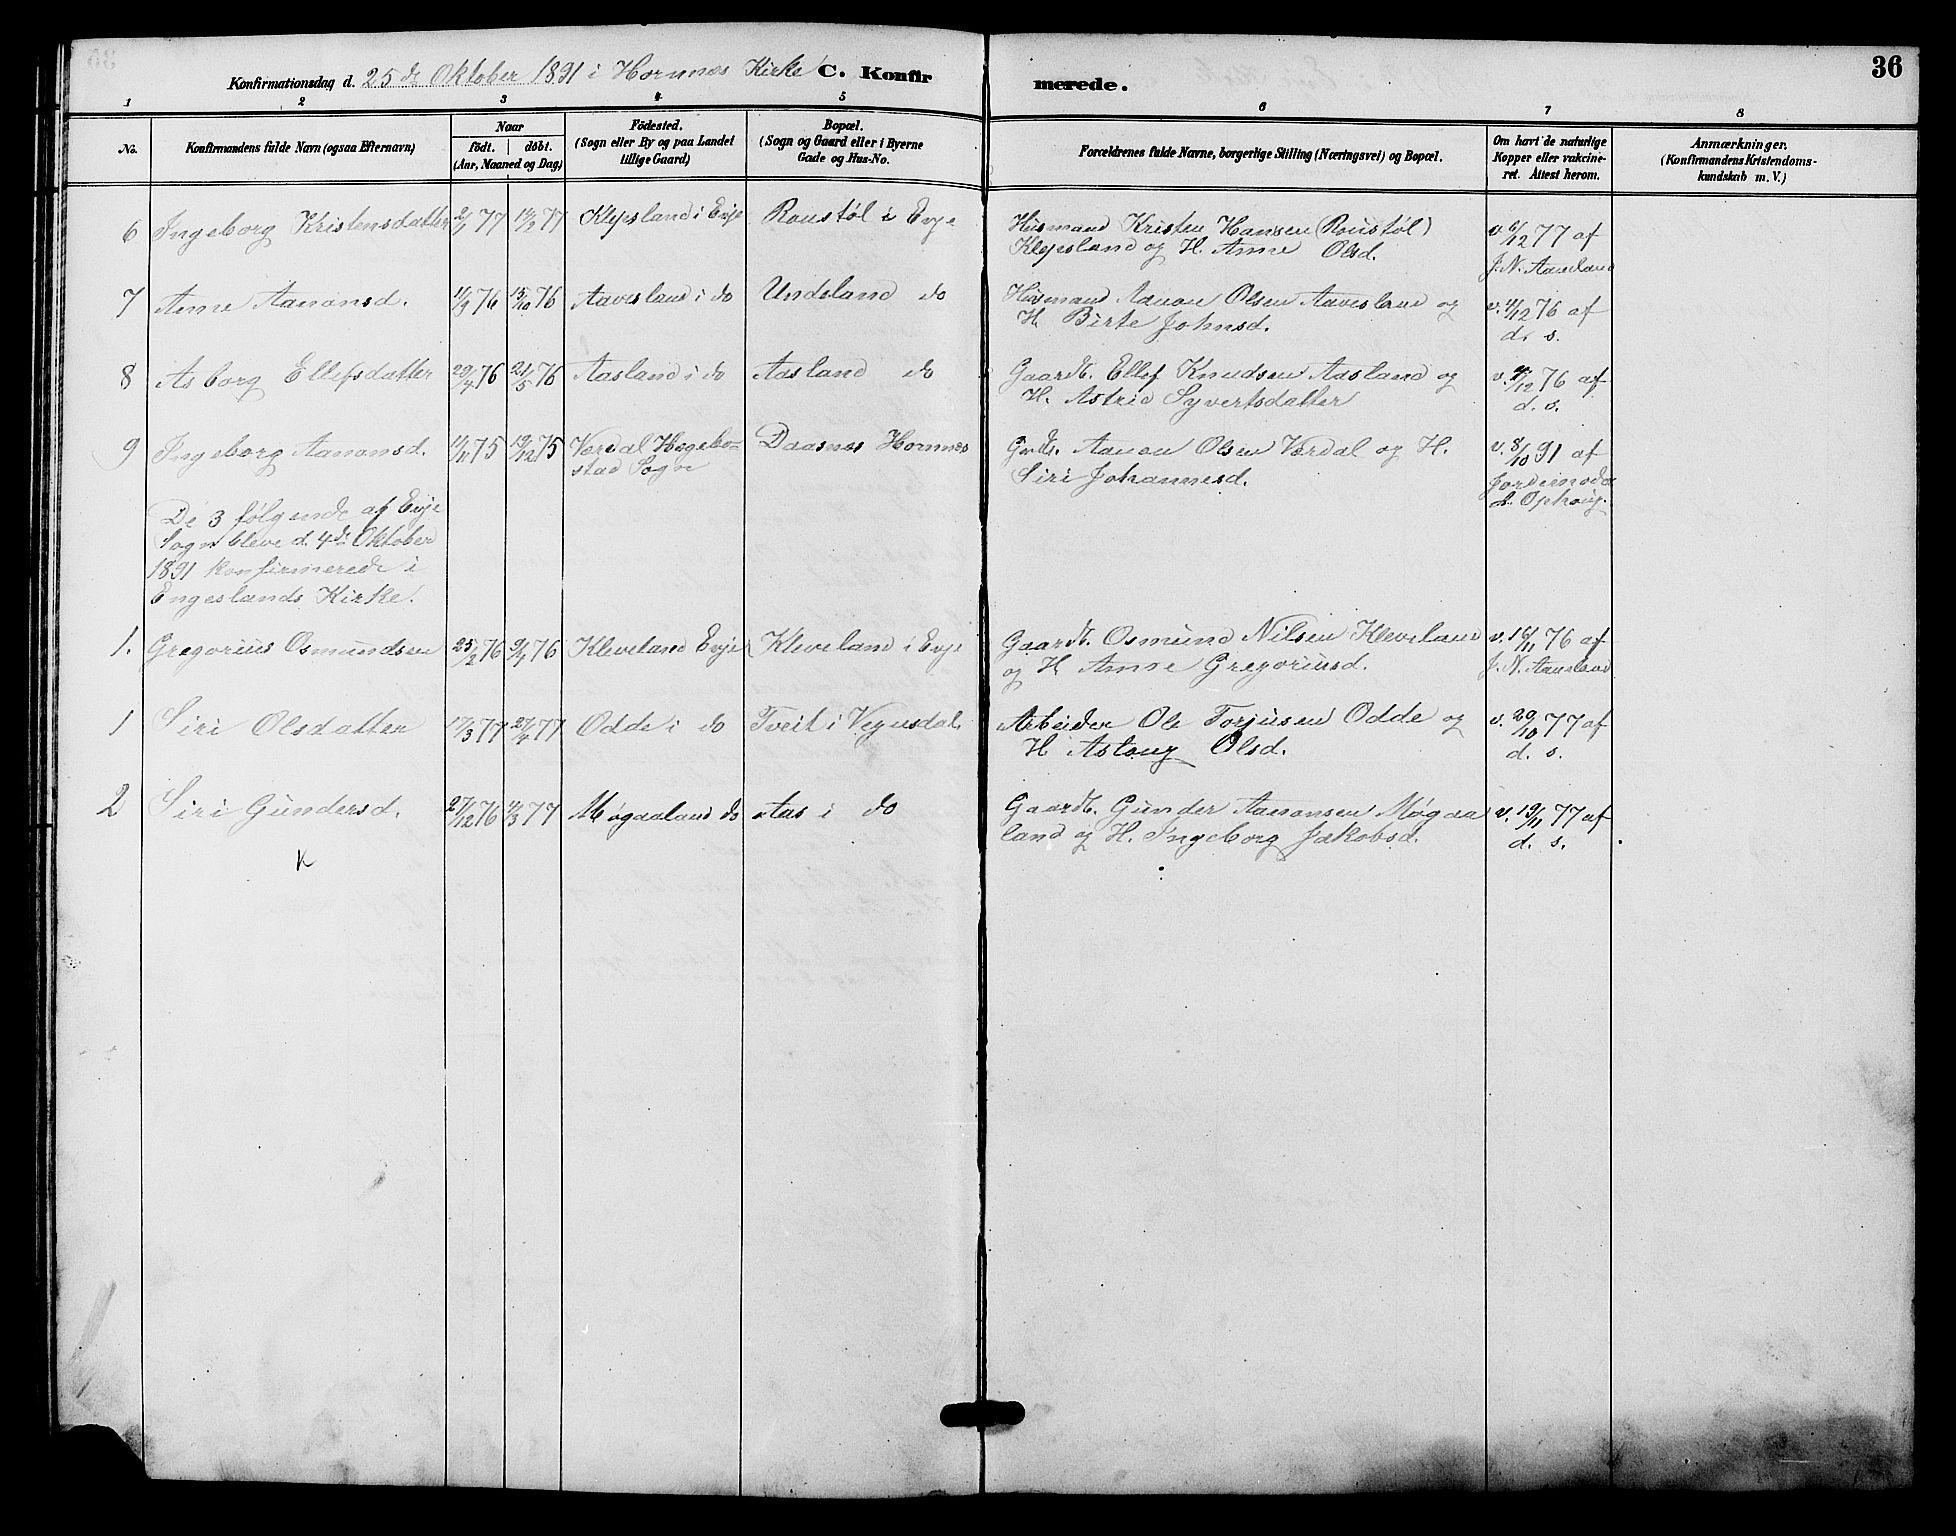 36
Konfirmationsdag d. 25de Oktober 1891 i Hornnes Kirke C. Konfirmerede.
1 2 3 4 5 6 7 8
No.
Konfirmandens fulde Navn (ogsaa Efternavn)
Naar
födt. döbt.
(Aar, Maaned og Dag)
Födested.
(Sogn eller By og paa Landet
tillige Gaard)
Bopæl.
(Sogn og Gaard eller i Byerne
Gade og Hus-No.
Forældrenes fulde Navne, borgerlige Stilling (Næringsvei) og Bopæl.
Om havt de naturlige
Kopper eller vakcine-
ret. Attest herom.
Anmærkninger.
(Konfirmandens Kristendoms-
kundskab m. V.)
6 Ingeborg Kristensdatter 77 77 Klepsland i Evje Roustøl i Evje
Husmand Kristen Hansen (Roustøl)
Klepsland og H. Anne Olsd.
v. 6/12 77 af
J. N. Aaneland
7 Anne Aanonsd. 11/9 76 15/10 76 Aavesland i do Undeland do
Husmand Aanon Olsen Aavesland og
H. Birte Johnsd.
v. 4/12 76 af
d. s.
8 Asborg Ellefsdatter 29/4 76 21/5 76 Aasland i do Aasland do
Gaardb. Ellef Knudsen Aasland og
H. Astrid Syvertsdatter
v. 4/12 76 af
d. s.
9 Ingeborg Aanonsd. 11/11 75 19/12 75 Værdal Hægebo-
stad Sogn
Daasnes Hornnes
Grdb. Aanon Olsen Værdal og H.
Siri Johannesd.
v. 8/10 91 af
Jordemoder
Ophoug.
De 3 følgende af Evje
Sogn bleve d. 4de Oktober
1891 konfirmerede i
Engeslands Kirke.
1. Gregorius Osmundsen 25/2 76 9/4 76 Kleveland Evje Kleveland i Evje
Gaardb. Osmund Nilsen Kleveland
og H. Anne Gregoriusd.
v. 16/11 76 af
J. N. Aaneland
1 Siri Olsdatter 17/3 77 27/4 77 Odde i do Tveit i Vegusdal
Arbeider Ole Torjusen Odde og
H. Aslaug Olsd.
v. 29/10 77 af
d. s.
2 Siri Gundersd. 27/12 76 4/3 77 Møgaaland do Aas i do
Gaardb. Gunder Aanonsen Møgaa
land og H. Ingeborg Jakobsd.
v. 19/11 77 af
d. s.
K